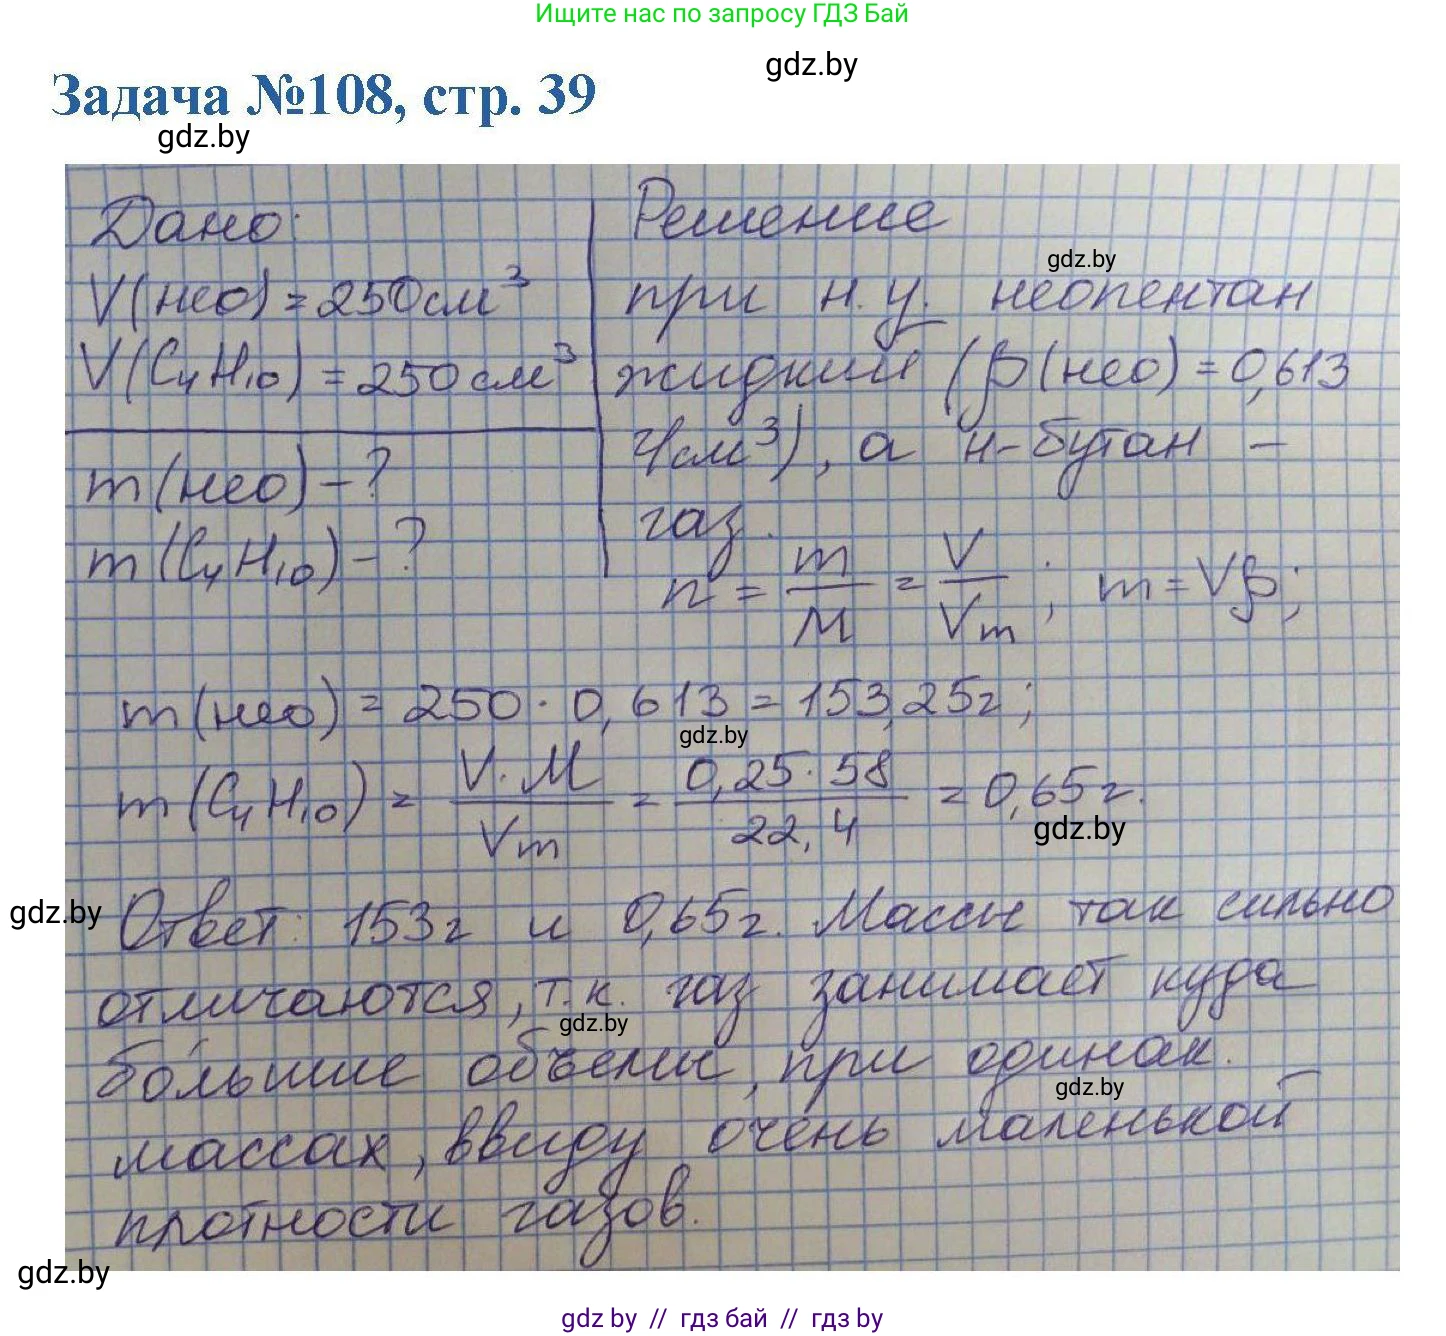 Ищите нас по запросу ГДЗ Бай
gdz.by
Задача №108, стр. 39
gdz.by
Дано:
V(нео) = 250 см³
V(C₄H₁₀) = 250 см³
m(нео) - ?
m(C₄H₁₀) - ?
Решение
gdz.by
при н.у. неопентан
жидкий (ρ(нео) = 0,613
г/см³), а н-бутан –
газ.
n = m/M = V/Vm; m = Vρ;
m(нео) = 250 · 0,613 = 153,25г;
gdz.by
m(C₄H₁₀) = V·M/Vm = 0,25·58/22,4 = 0,65г.
gdz.by
gdz.by
Ответ: 153г и 0,65г. Массы так сильно
отличаются, т.к. газ занимает куда
gdz.by
бо́льшие объемы, при одинак.
gdz.by
массах, ввиду очень маленькой
плотности газов.
gdz.by
gdz by // гдз бай // гдз by